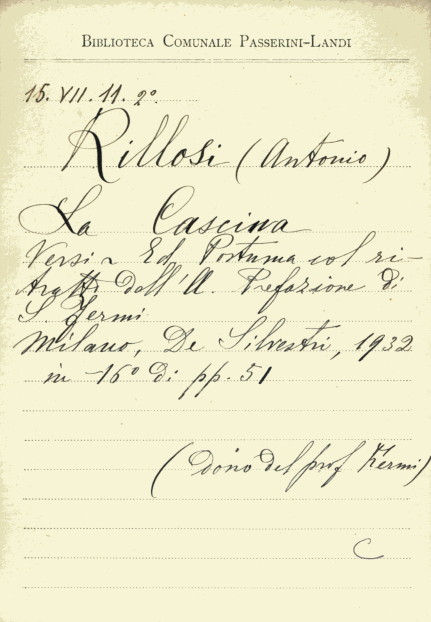 BIBLIOTECA COMUNALE PASSERINI-LANDI
15. VII. 11. 2º
Rillosi (Antonio)
La Cascina
Versi ~ Ed. Postuma col ri-
tratto dell'A. Prefazione di
S. Fermi
Milano, De Silvestri, 1932
in -16º di pp. 51
(Dono del prof Fermi)
C